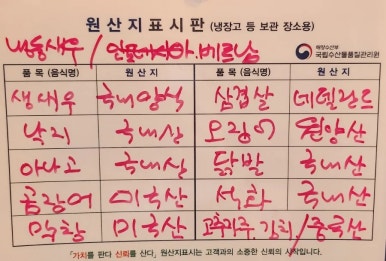 원산지표시판 (냉장고 등 보관 장소용)
냉동새우 / 인도네시아.베트남
해양수산부
국립수산물품질관리원
품 목 (음식명) 원 산 지 품 목 (음식명) 원 산 지
생새우 국내양식 삼겹살 네덜란드
낙지 국내산 오징어 원양산
아나고 국내산 닭발 국내산
곰장어 미국산 석화 국내산
막창 미국산 고추가루 김치 / 중국산
「가치를 판다 신뢰를 산다」 원산지표시제는 고객과의 소중한 신뢰의 시작입니다.